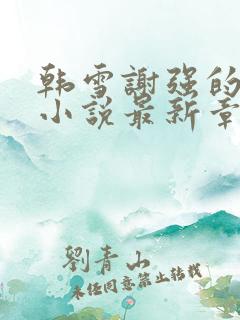 韩雪謝强的
小说最新章
劉青山
未经同意禁止转载